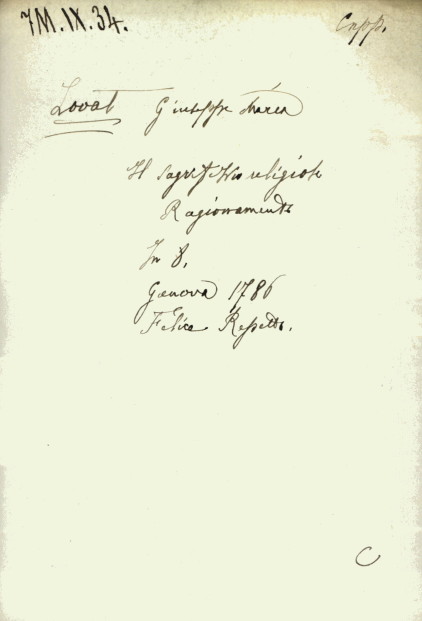 7M.IX.34.
Capp.
Lovat Giuseppe Maria
Il sagrifizio religioso
Ragionamento
In 8.
Genova 1786
Felice Repetto.
C